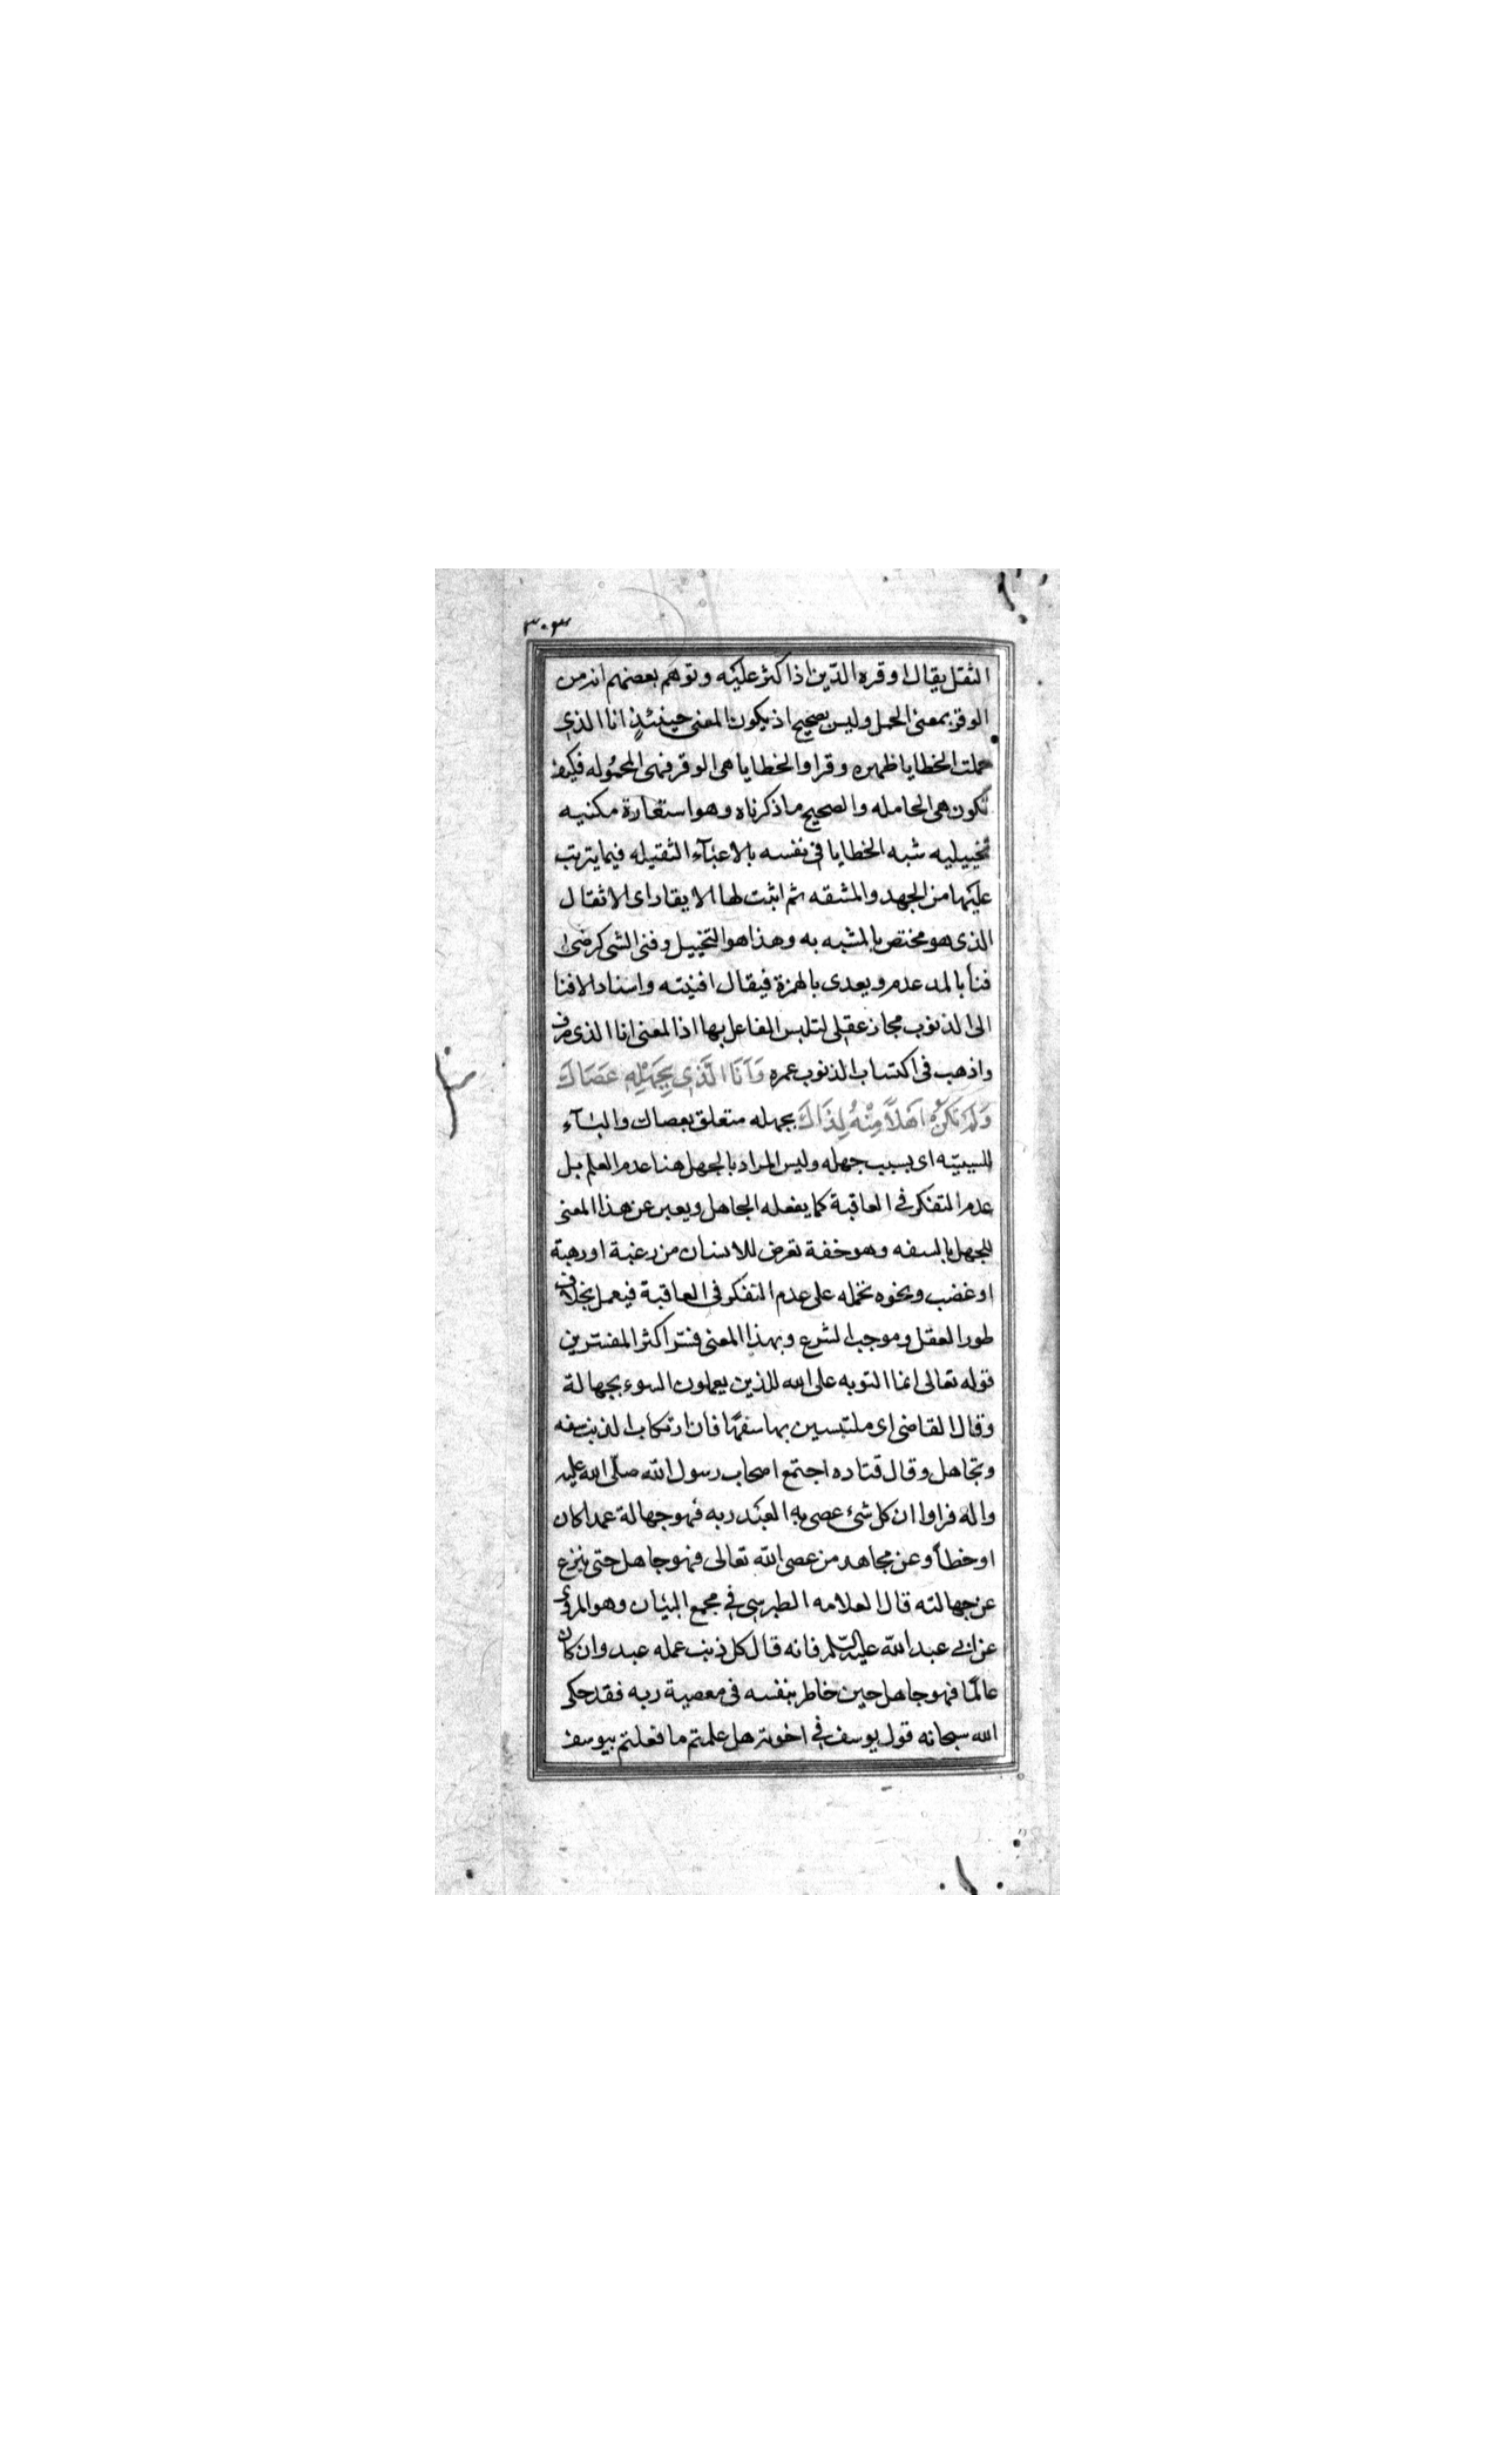 ٣٠٣
الثقل يقال اوقره الدّين اذا كثر عليه وتوهم بعضهم انه من
الوقر بمعنى الحمل وليس بصحيح اذ يكون المعنى حينئذٍ انا الذى
حملت الخطايا ظهره وقرا والخطايا هى الوقر فهى المحموله فكيف
تكون هى الحامله والصحيح ما ذكرناه وهو استعارة مكنيه
تخييليه شبه الخطايا فى نفسه بالاعبآء الثقيله فيما يترتب
عليها من الجهد والمشقه ثم اثبت لها الايقار اى الاثقال
الذى هو مختص بالمشبه به وهذا هو التخييل وفنى الشى كرضى
فنأ بالمد عدم ويعدى بالهمزة فيقال افنيته واسناد الافنا
الى الذنوب مجاز عقلى لتلبس الفاعل بها اذ المعنى انا الذى صرف
واذهب فى اكتساب الذنوب عمره وَاَنَا الَّذِى بِجَهْلِهِ عَصَاكَ
وَلَمْ تَكُنْ اَهْلاً مِنْهُ لِذَاكَ بجهله متعلق بعصاك والبآء
للسببيّه اى بسبب جهله وليس المراد بالجهل هنا عدم العلم بل
عدم التفكر فى العاقبة كما يفعله الجاهل ويعبر عن هذا المعنى
للجهل بالسفه وهو خفة تعرض للانسان من رغبة او رهبة
او غضب ونحوه تحمله على عدم التفكر فى العاقبة فيعمل بخلاف
طور العقل وموجب الشرع وبهذا المعنى فسّر اكثر المفسّرين
قوله تعالى انما التوبه على الله للذين يعملون السوء بجهالة
وقال القاضى اى ملتبسين بها سفهًا فان ارتكاب الذنب سفه
وتجاهل وقال قتاده اجتمع اصحاب رسول الله صلّى الله عليه
واله فراوا ان كل شىء عصى به العبد ربه فهو جهالة عمدا كان
او خطأ وعن مجاهد من عصى الله تعالى فهو جاهل حتى ينزع
عن جهالته قال العلامه الطبرسى فى مجمع البيان وهو المروى
عن ابى عبد الله عليه السّلم فانه قال كل ذنب عمله عبد وان كان
عالمًا فهو جاهل حين خاطر بنفسه فى معصية ربه فقد حكى
الله سبحانه قول يوسف فى اخوته هل علمتم ما فعلتم بيوسف